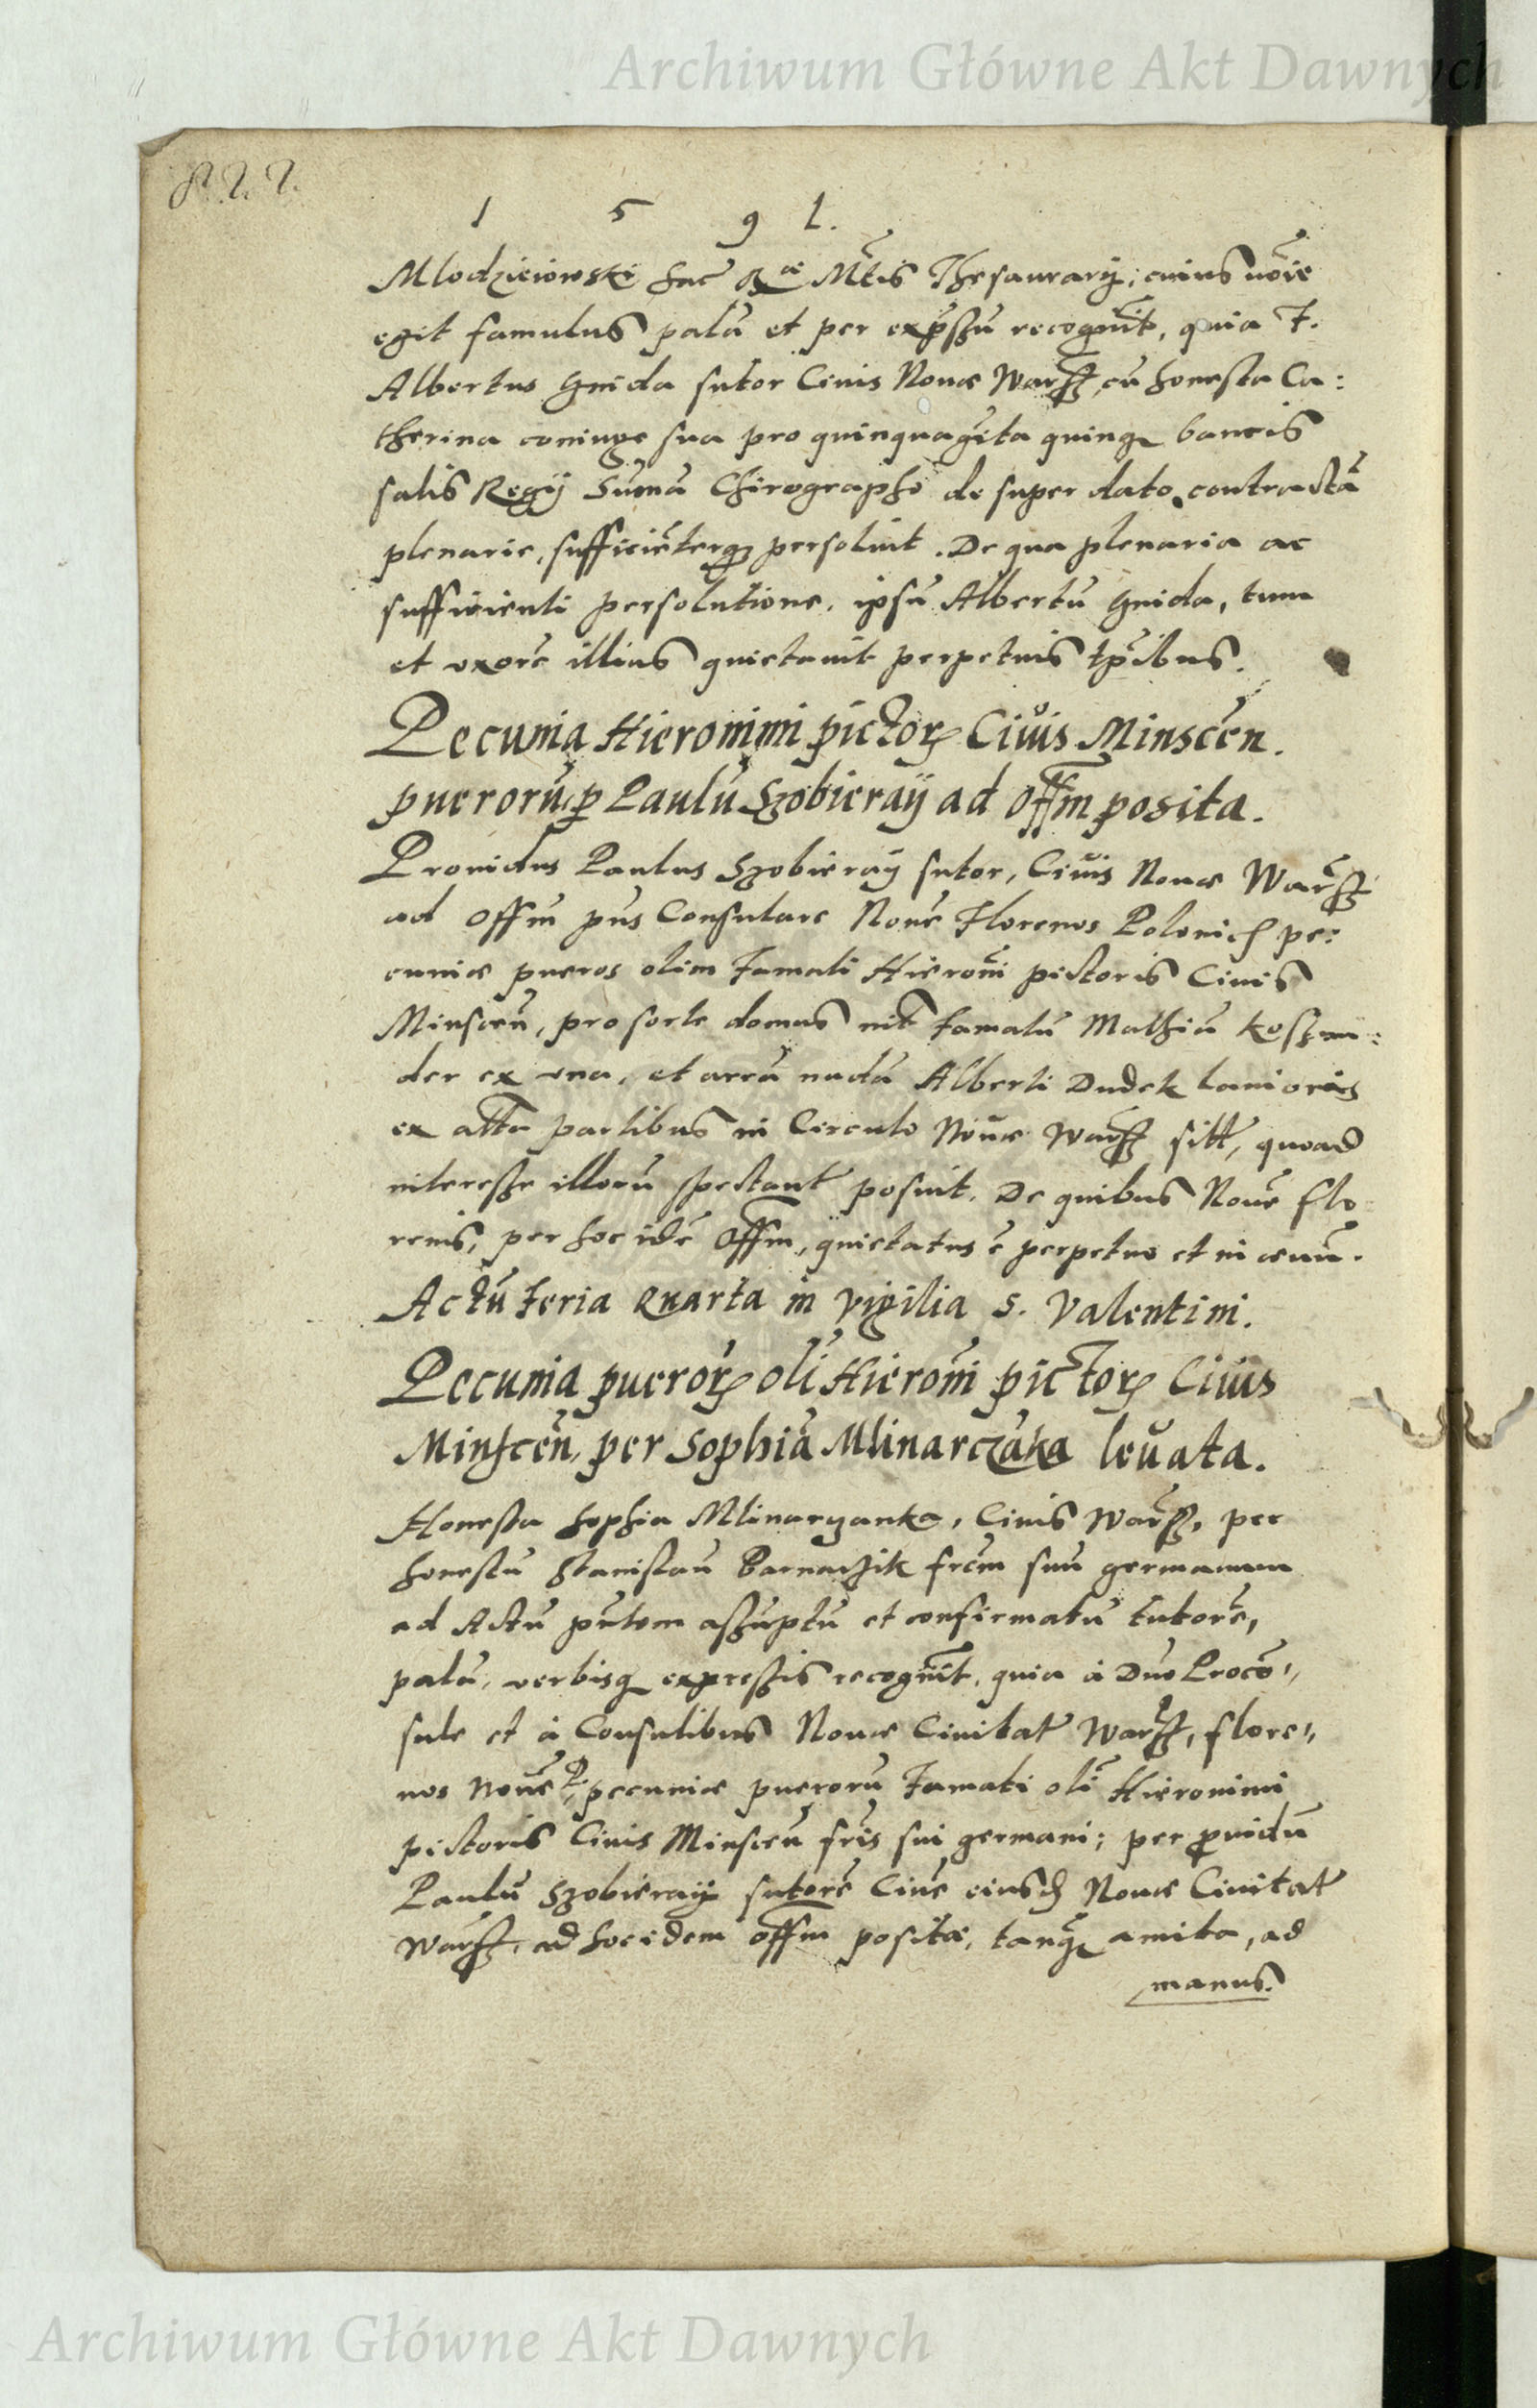 Archiwum Główne Akt Dawnych
822
1 5 9 1.
Mlodzieiowski Sac Rae Mtis Thesaurarÿ, cuius nōie
egit famulus palā et per exp̄ssū recognūit, quia F.
Albertus Gnida sutor Ciuis Nouæ Warss, cū honesta Ca:
therina coniuge sua pro quinquagēta quinq bancis
salis Regÿ Sūmā Chirographo de super dato contractā
plenarie, sufficiēterq persoluit. De qua plenaria ac
sufficienti persolutione, ipsū Albertū Gnida, tum
et vxorē illius quietauit perpetuis tp̄ibus.
Pecunia Hieronimi pictor Ciuis Minscen.
puerorū, p Paulū Szobieraÿ ad Offm posita.
Prouidus Paulus Szobieraÿ sutor, Ciuis Nouæ Warss
ad Offm pns Consulare Nouē Florenos Polonic pe:
cuniæ pueros olim Famati Hieronī pictoris Ciuis
Minscen, pro sorte domus int Famatū Mathiā Koszmi:
der ex vna, et areā nudā Alberti Dudek lanionis
ex altā partibus in Circulo Nouæ Warss sitt, quoad
interesse illorū spectant posuit. De quibus Nouē flo
renis, per hoc idē Offm, quietatus ē perpetuo et in æuū.
Actū Feria Quarta in Vigilia S. Valentini.
Pecunia pueror oli Hieronī pictor Ciuis
Minscen, per Sophiā Mlinarczāka leuata.
Honesta Sophia Mlinarzanka, Ciuis Warss, per
honestū Stanislaū Barnaczik frēm suū germanum
ad Actū pn̄tem assuptū et confirmatū tutorē,
palā, verbisq expressis recognūit, quia à Dno Procō,,
sule et à Consulibus Nouæ Ciuitat Warss, flore,,
nos Nouē P, pecuniæ puerorū Famati oli Hieronimi
pictoris Ciuis Minscen frīs sui germani; per prouidū
Paulū Szobieraÿ sutorē Ciuē eiusd Nouæ Ciuitat
Warss, ad hoc idem offm positæ, tanq amita, ad
manus.
Archiwum Główne Akt Dawnych